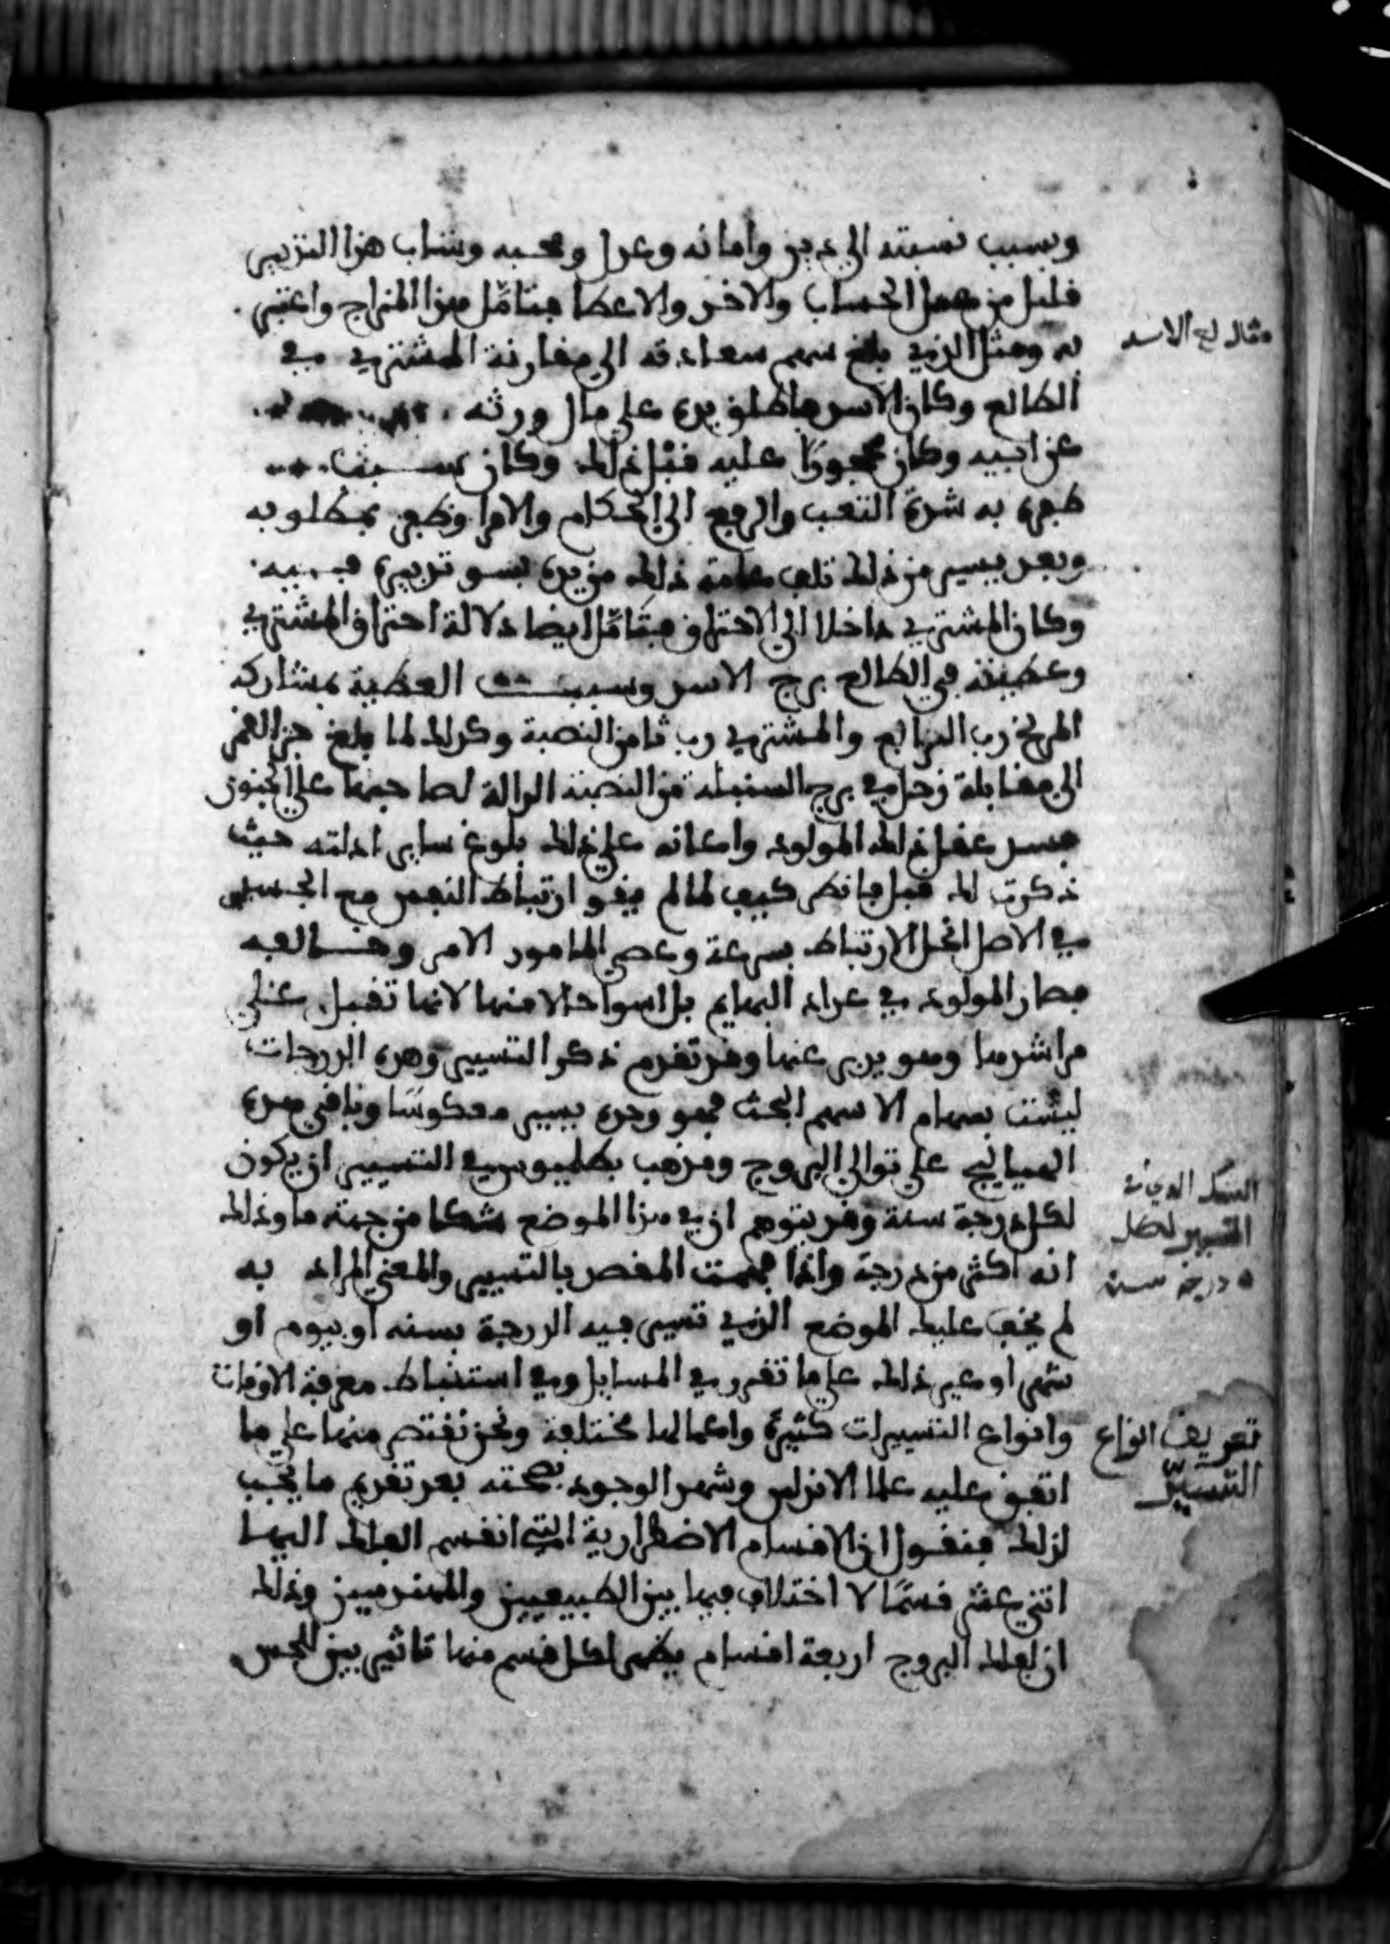 وبسبب نسبته الى دين وامانه وعدل ومحبه وشاب هذا التزبير
قليل من عمل الحساب والاخذ والاعطا فتامّل هذا المزاج واعتبر
به ومثل الذي بلغ سهم سعادته الى مقارنة المشتري في
الطالع وكان الاسد فاطلق يده على مال ورثه
عن ابيه وكان محجورًا عليه قبل ذلك وكان سبب
ظفره به شدة التعب والرفع الى الحكام والامرا وظفر بمطلوبه
وبعد يسير من ذلك تلف عامة ذلك من يده بسو تدبيره فيه
وكان المشتري داخلا الى الاحتراق فتامّل ايضا دلالة احتراق المشتري
وعطيته في الطالع برج الاسد وسبب العطية بمشاركه
المريخ رب الرابع والمشتري رب ثامن النصبة وكذلك لما بلغ جزء القمر
الى مقابلة زحل في برج السنبله من النصبة الدالة لصاحبها على الجنون
فسد عقل ذلك المولود واعانه على ذلك بلوغ ساير ادلته حيث
ذكرت لك قبل فانظر كيف لما لم يقو ارتباط النفس مع الجسد
في الاصل انحل الارتباط بسرعة وعصى المامور الامر وخالفه
فصار المولود في عداد البهايم بل اسوا حالا منها لانها تقبل عن
مرشدها وهو يربى عنها وقد تقدم ذكر التسيير وهذه الدرجات
ليست بسهام الا سهم البخت فهو وحده يسير معكوسًا وباقي هذه
الهياليج على توالي البروج ومذهب بطلميوس في التسيير ان يكون
لكل درجة سنة وقد يتوهم ان في هذا الموضع شكا من جهة ما وذلك
انه اكثر من درجة واذا فهمت المقصد بالتسيير والمعنى المراد به
لم يخف عليك الموضع الذي تسير فيه الدرجة بسنه او بيوم او
شهر او غير ذلك على ما تقرر في المسايل وفي استنباط معرفة الاوقات
وانواع التسييرات كثيرة واعمالها مختلفة ونحن نقتصر منها على ما
اتفق عليه علما الاندلس وشهد الوجود بصحته بعد تقديم ما يجب
لذلك فنقول ان الاقسام الاضطرارية التي انقسم الفلك اليها
اثني عشر قسمًا لا اختلاف فيها بين الطبيعيين والمهندسين وذلك
ان لفلك البروج اربعة اقسام يظهر لكل قسم منها تاثير بين للحس
مثال الاسد
التسيير لكل
درجه سنه
تعريف انواع
التسيير